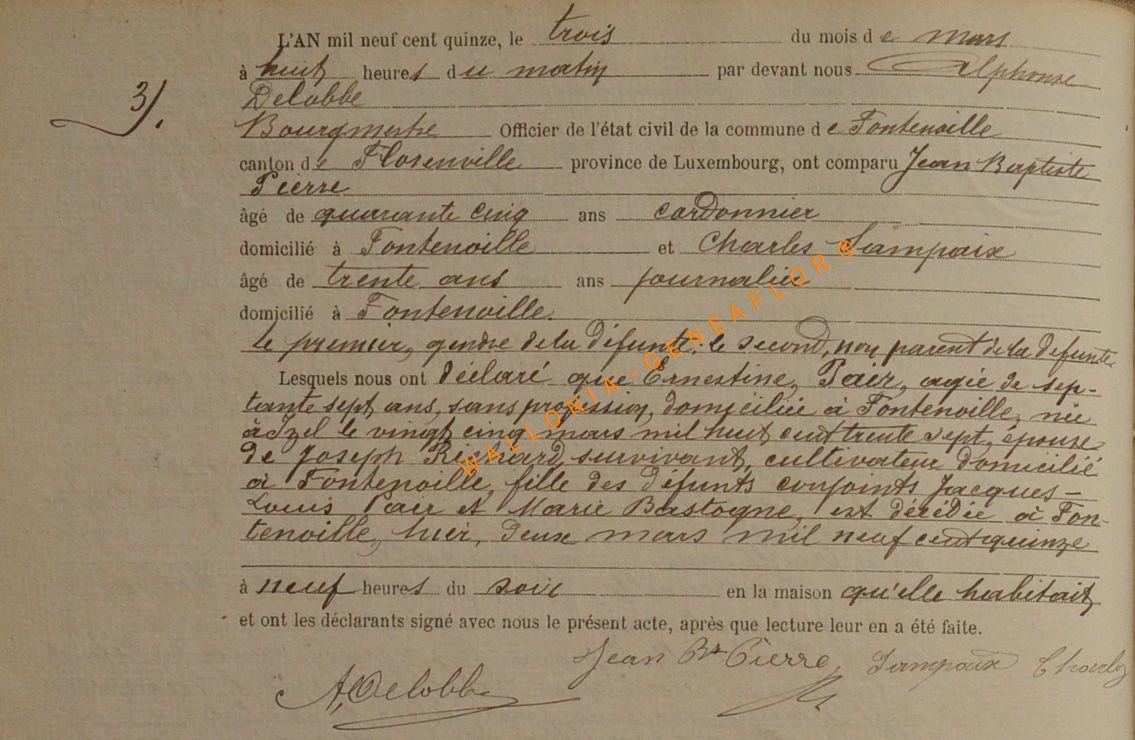 L'AN mil neuf cent quinze, le trois du mois de mars
à huit heures du matin par devant nous Alphonse
Delobbe
3).
Bourgmestre Officier de l'état civil de la commune de Fontenoille
canton de Florenville province de Luxembourg, ont comparu Jean Baptiste
Pierre
âgé de quarante cinq ans cordonnier
domicilié à Fontenoille et Charles Lampaix
âgé de trente ans ans journalier
domicilié à Fontenoille.
le premier, gendre de la défunte; le second, non parent de la défunte
Lesquels nous ont déclaré que Ernestine, Pair, agée de sep-
tante sept ans, sans profession, domiciliée à Fontenoille, née
à Izel le vingt cinq mars mil huit cent trente sept, épouse
de Joseph Richard, survivant, cultivateur domicilié
à Fontenoille, fille des défunts conjoints Jacques-
Louis Pair et Marie Bastogne, est décédée à Fon-
tenoille, hier, deux mars mil neuf cent quinze
à neuf heures du soir en la maison qu'elle habitait,
et ont les déclarants signé avec nous le présent acte, après que lecture leur en a été faite.
Jean Bte Pierre, Lampaix Charles
A. Delobbe
WALLONIA-GENEAFLOR©